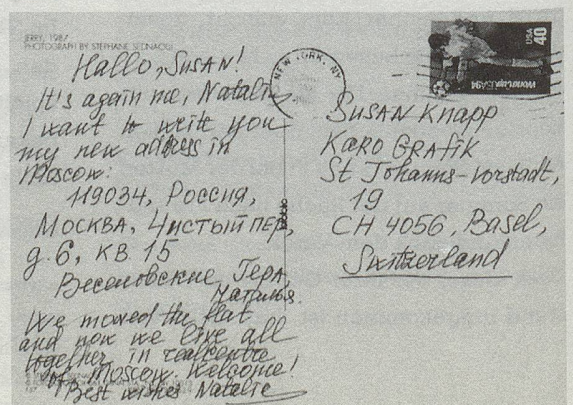 JERRY, 1987
PHOTOGRAPH BY STEPHANE SEDNAOUI
Hallo, Susan!
It's again me, Natalie
I want to write you
my new address in
Moscow:
119034, Россия,
Москва, Чистый пер,
д. 6, кв. 15
Веселовские Гера,
Наталья.
We moved the flat
and now we live all
together in realcentre
of Moscow. Welcome!
Best wishes Natalie
NEW YORK, NY
World Cup USA 94
USA
40
Susan Knapp
Karo Grafik
St Johanns-vorstadt,
19
CH 4056, Basel,
Switzerland